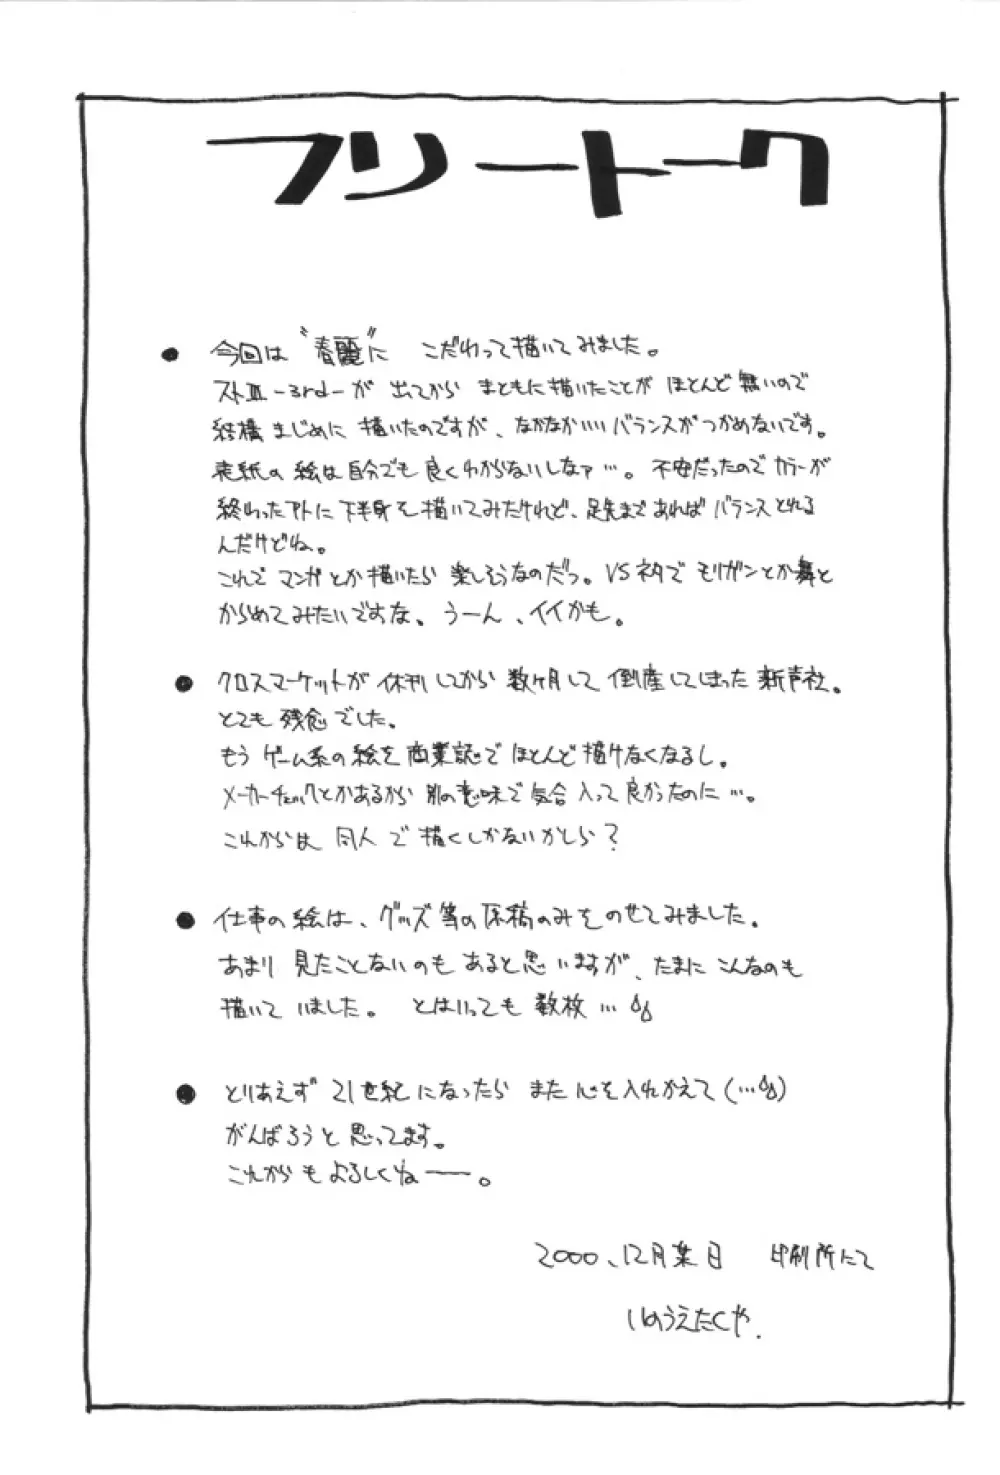 フリートーク
● 今回は〝春麗〟に こだわって描いてみました。
ストⅢ-3rd-が 出てから まともに描いたことが ほとんど無いので
結構まじめに 描いたのですが、なかなかいいバランスがつかめないです。
表紙の絵は自分でも良くわからないしなァ…。 不安だったのでカラーが
終わった下に下半身を描いてみたけれど、足先まであればバランスとれる
んだけどね。
これでマンガとか描いたら 楽しそうなのだっ。VSネタでモリガンとか舞と
からめてみたいですな、うーん、イイかも。
● クロスマーケットが休刊してから 数ヶ月して 倒産してしまった新声社。
とても残念でした。
もうゲーム系の絵を商業誌でほとんど描けなくなるし。
メーカーチェックとかあるから別の意味で気合入って良かったのに…。
これからは同人で描くしかないかしら?
● 仕事の絵は、グッズ等の原稿のみをのせてみました。
あまり見たことないのもあると思いますが、たまにこんなのも
描いていました。 とはいっても数枚…
● とりあえず 21世紀になったら また心を入れかえて(…)
がんばろうと思ってます。
これからもよろしくねー。
2000、12月某日 印刷所にて
いのうえたくや.